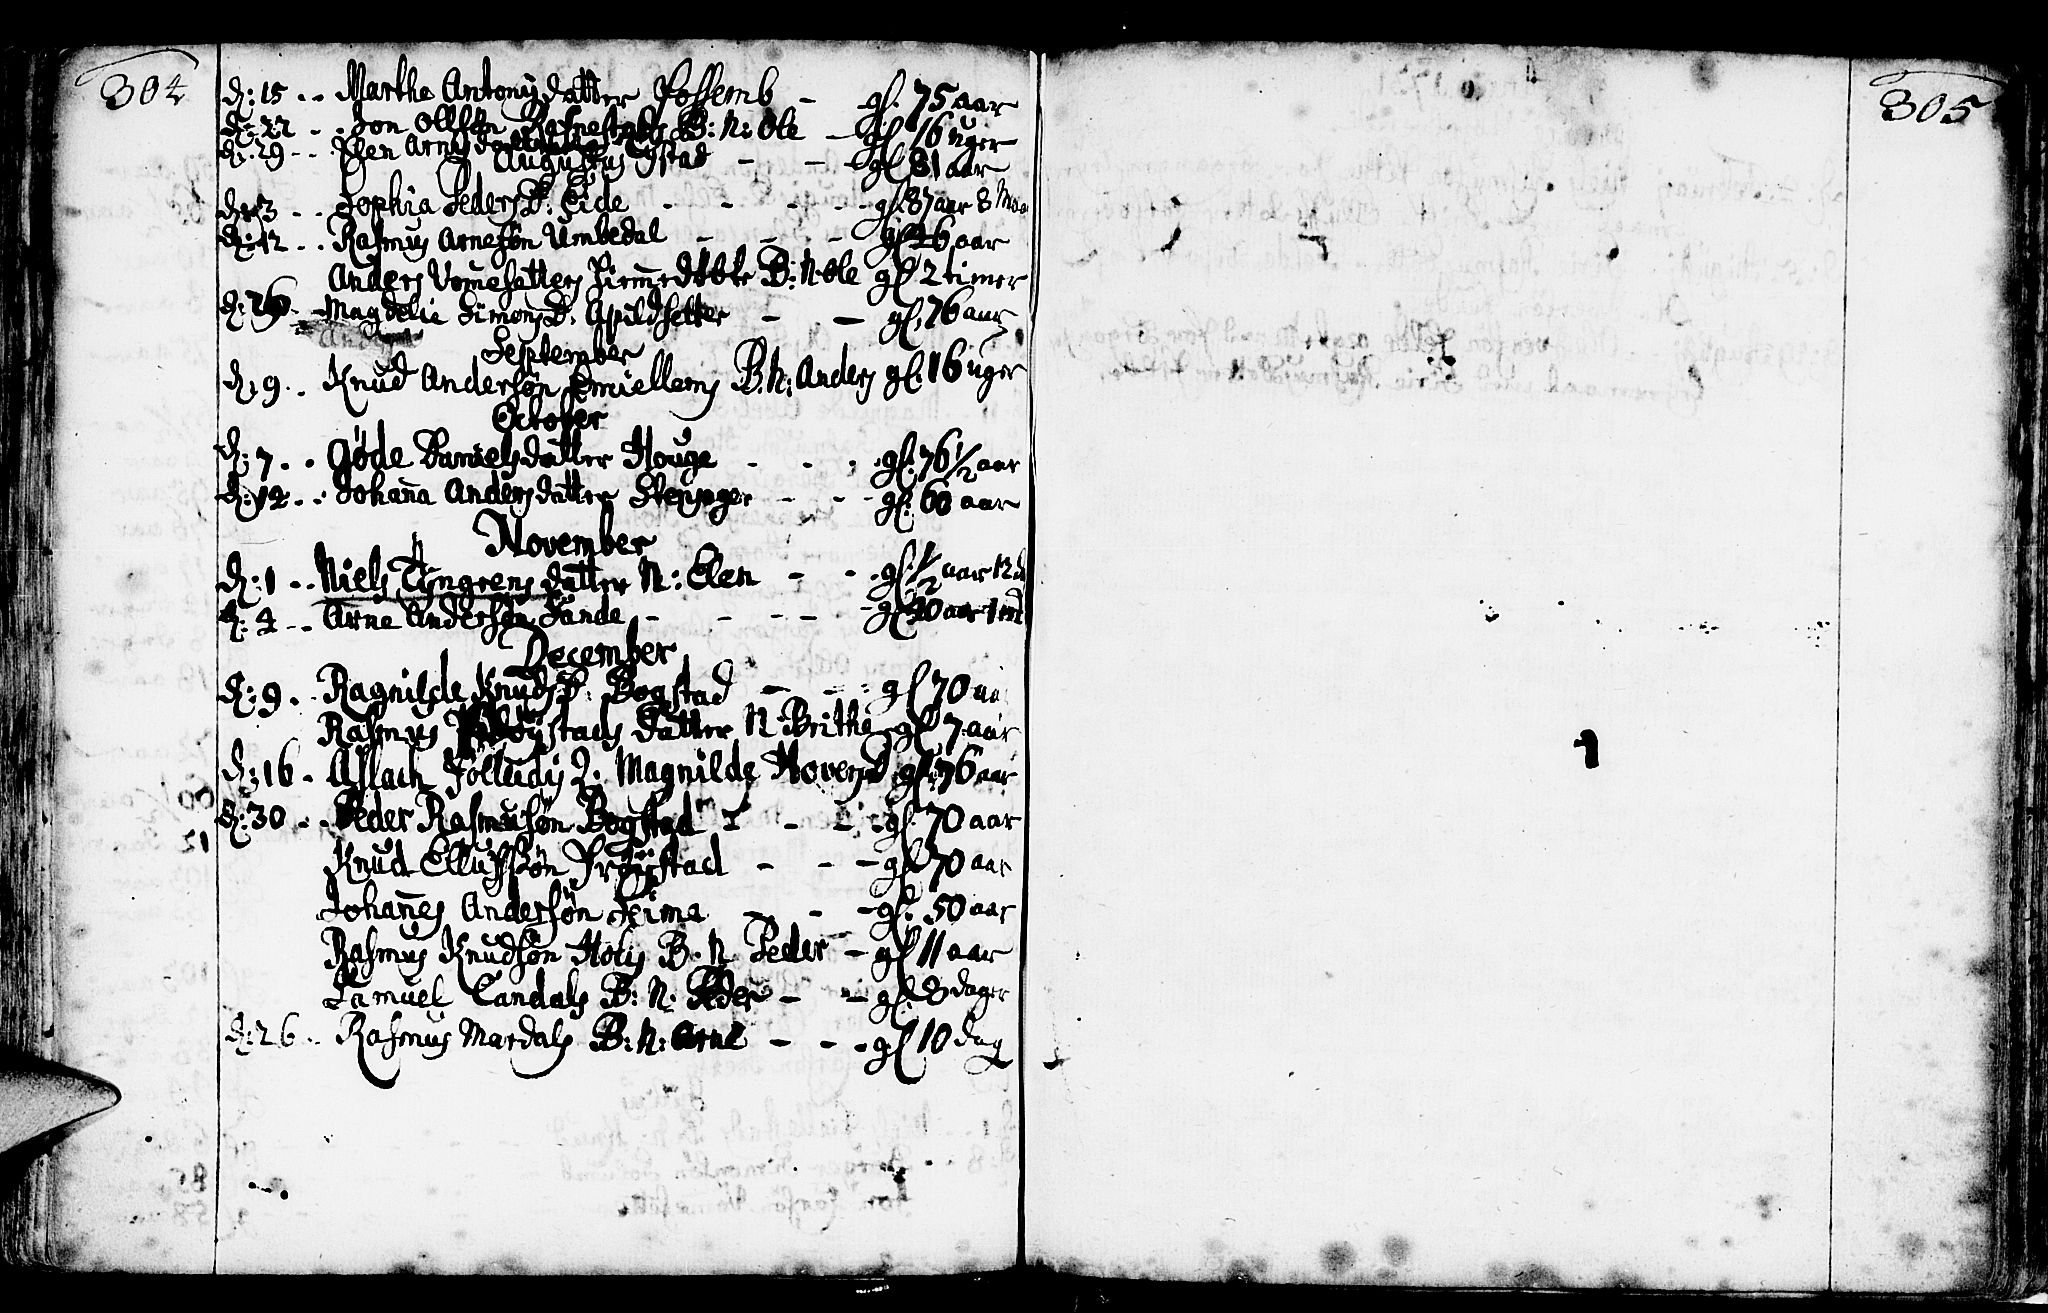 304
d: 15 .. Marthe Antonij datter Possemb - gl. 75 aar
d: 22 .. Jon Ollsøn B: N: Ole - gl 16 uger
d: 29 .. datter Tystad - - - gl 81 aar
Augustus
d: 3 .. Sophia PedersD: Eide - - - - gl. 87 aar 8 Maa
d: 12 .. Rasmus Arnesøn Umbedal - - - gl 26 aar
Anders Vomesetters B: N: Ole gl 2 timer
d: 26 .. Magdelie SimonsD: Apildsetter - - gl. 76 aar
September
d, 9 .. Knud Andersøn B. N: Anders gl. 16 uger
October
d: 7 .. Gøde Danielsdatter Houge - - - gl. 76 1/2 aar
d: 12 .. Johana Andersdatter - - - gl: 60 aar
November
d: 1 .. Niels datter N: Elen - - gl. 1/2 aar 12 d
d: 2 .. Arne Andersøn Sande - - - - gl 90 aar 1 md
December
d: 9 .. Ragnilde KnudsD: Bogstad - - - gl 70 aa
Rasmus datter N. Brithe gl 7 aar
d: 16 . Aslach Magnilde gl. 76 aar
d: 30 .. Peder Rasmusøn Bogstad - - - gl. 70 aar
Knud Ellussøn Frøystad - - - gl 70 aar
Johanes Andersøn - - - gl. 50 aar
Rasmus Knudsøn Hols B. N. Peder - gl 11 aar
Samuel Landals B: N. Peder - - gl. 8 dager
d: 26 .. Rasmus Mardals B: N: Arne - - - gl 10 dag
305